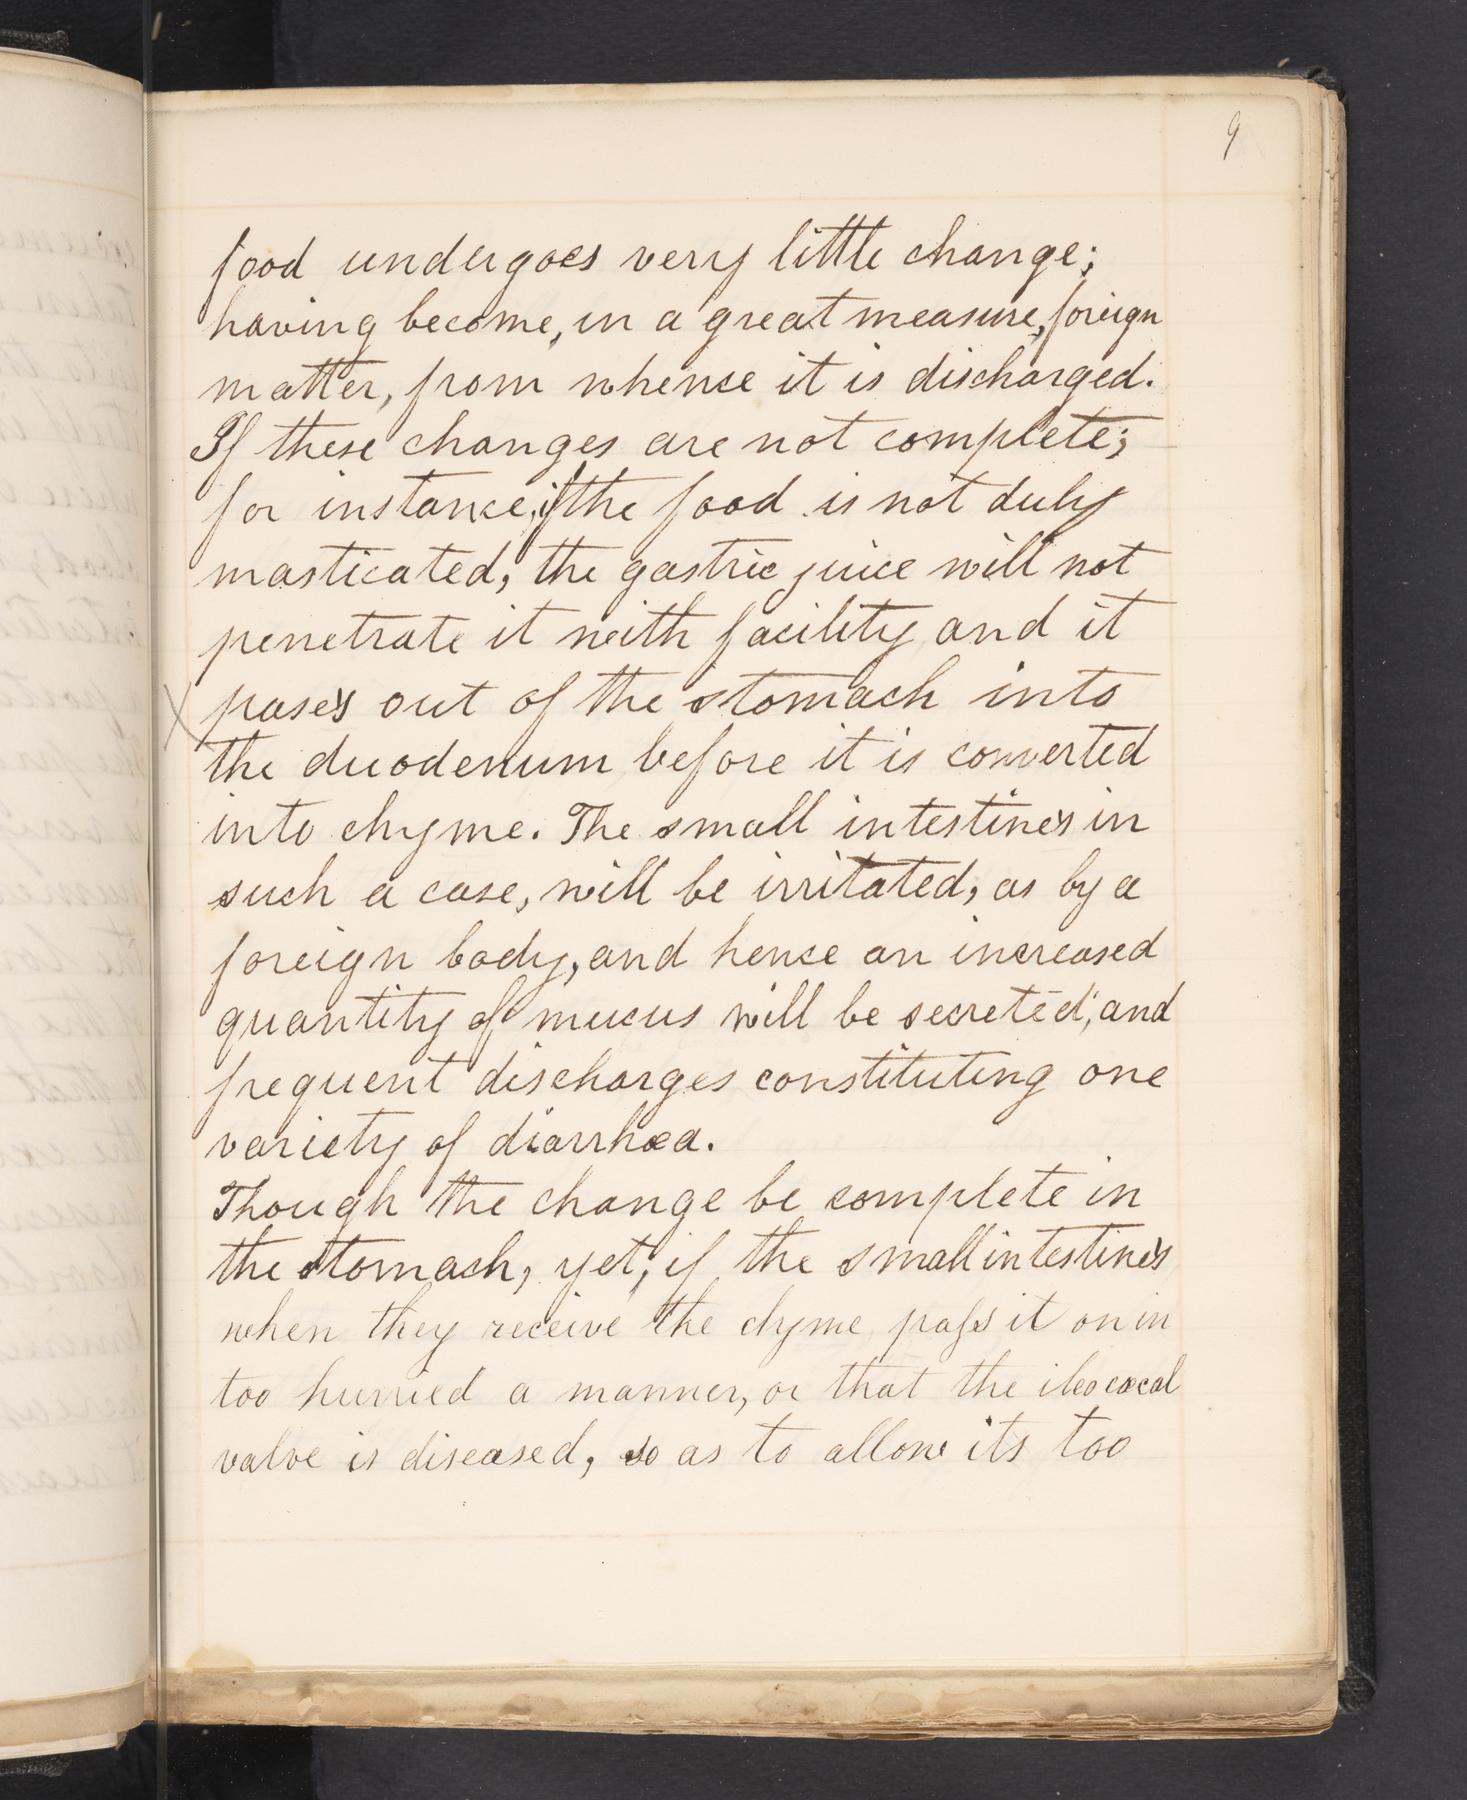 9
food undergoes very little change;
having become, in a great measure, foreign
matter, from whence it is discharged.
If these changes are not complete;
for instance, if the food is not duly
masticated, the gastric juice will not
penetrate it with facility and it
X pases out of the stomach into
the duodenum before it is converted
into chyme. The small intestines in
such a case, will be irritated, as by a
foreign body, and hence an increased
quantity of mucus will be secreted; and
frequent discharges constituting one
variety of diarrhœa.
Though the change be complete in
the stomach, yet, if the small intestines
when they receive the chyme pass it on in
too hurried a manner, or that the ileocæcal
valve is diseased, so as to allow its too